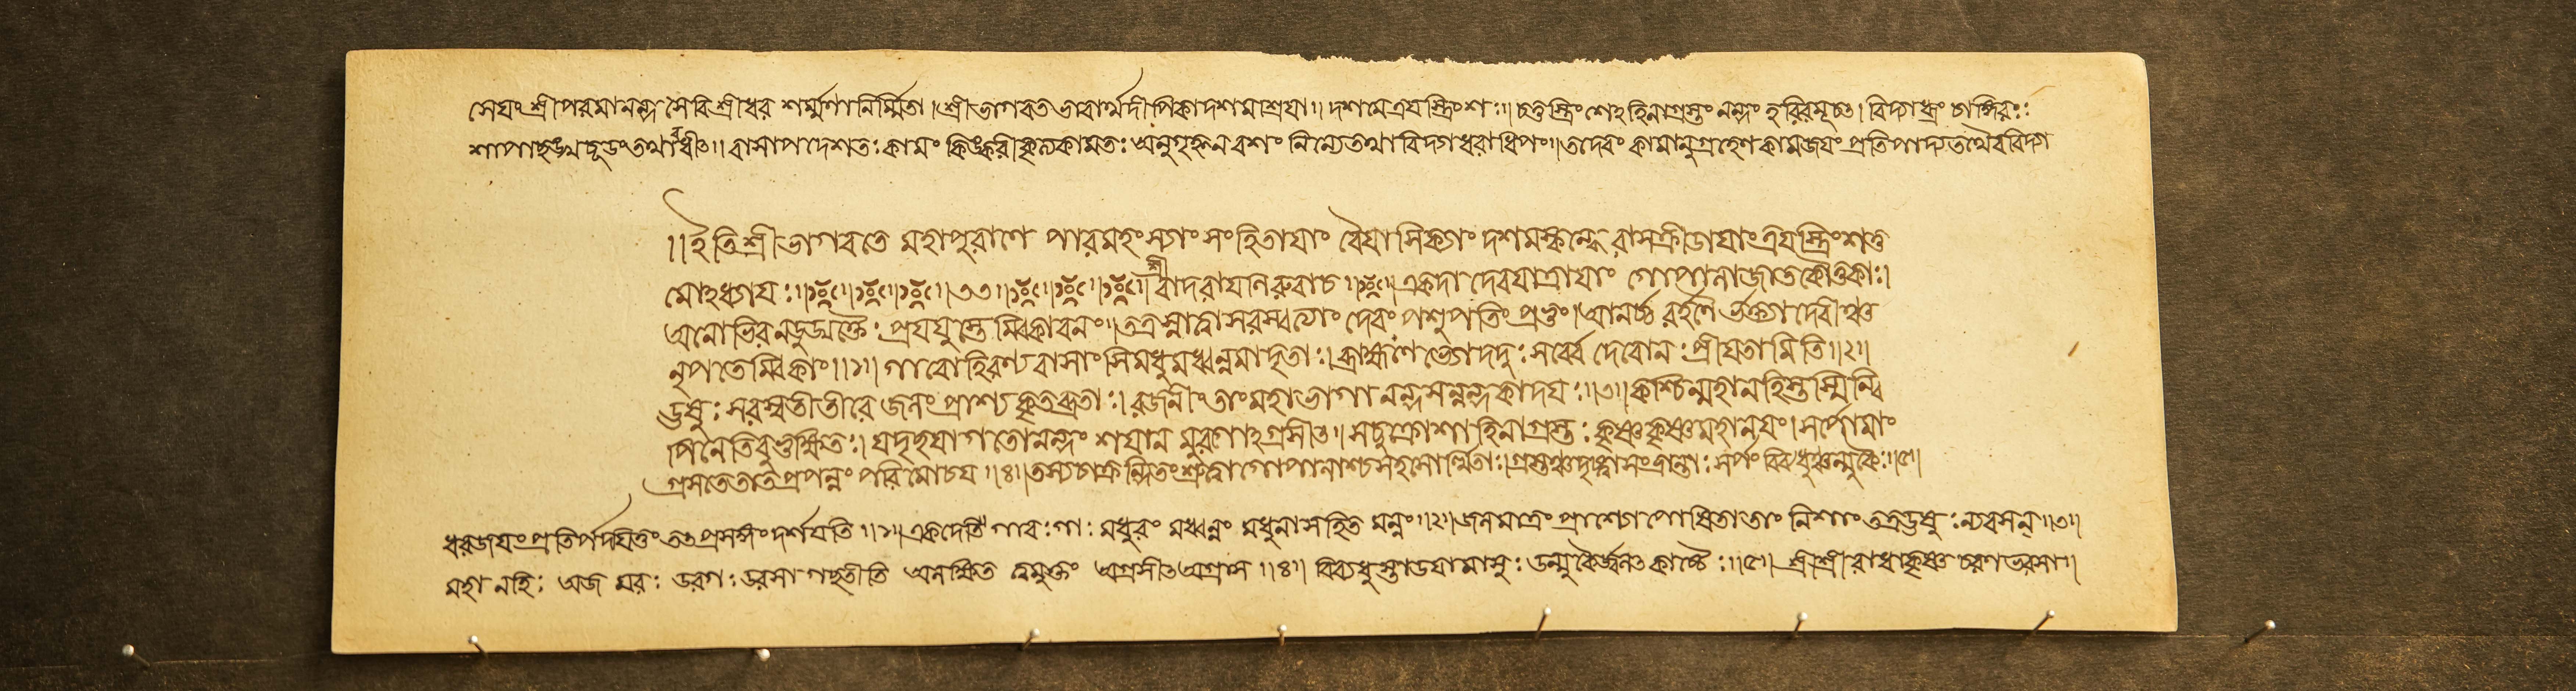 সেযং শ্রীপরমানন্দ সেবি শ্রীধর শর্ম্মণা নির্ম্মিতা। শ্রীভাগবত ভাবার্থদীপিকা দশমাশ্রযা॥ দশমে ত্রযস্ত্রিংশঃ॥ চতুস্ত্রিংশেঽহিনাগ্রস্তং নন্দং হরিরমূচত। বিদ্যাধ্রং চাঙ্গিরঃ
শাপাচ্ছঙ্খচূডং তথাবধীৎ॥ বাসাপদেশতঃ কামং কিঙ্করীকৃত্য কামতঃ অনুগৃহ্নন বশং নিন্যে তথা বিদ্যাধরাধিপং॥ তদেবং কামানুগ্রহেণ কামজযং প্রতিপাদ্য তথৈব বিদ্যা
॥ইতি শ্রীভাগবতে মহাপুরাণে পারমহংস্যাং সংহিতাযাং বৈযাসিক্যাং দশমস্কন্ধে রাসক্রীডাযাং ত্রযস্ত্রিংশত্ত
মোঽধ্যাযঃ॥ ৩৩॥ শ্রীবাদরাযনিরুবাচ॥ একদা দেবযাত্রাযাং গোপানাজাতকৌতুকাঃ।
অনোভিরনডুদ্যুক্তৈঃ প্রযযুস্তেম্বিকাবনং॥ তত্র স্নাত্বা সরস্বত্যাং দেবং পশুপতিং প্রভুং। আনর্চ্চুরর্হণৈর্ভক্ত্যা দেবীঞ্চ
নৃপতেম্বিকাং॥১॥ গাবোহিরণ্যবাসাংসি মধুমধ্বন্নমাদৃতাঃ। ব্রাহ্মণেভ্যো দদুঃ সর্ব্বে দেবোনঃ প্রীযতামিতি॥২॥
ঊষুঃ সরস্বতীতীরে জলং প্রাশ্য কৃতব্রতাঃ। রজনীং তাং মহাভাগা নন্দসনন্দকাদযঃ॥৩॥ কশ্চিন্মহানহিস্তস্মিন্বি
পিনেতিবুভুক্ষিতঃ। যদৃচ্ছযাগতোনন্দং শযানমুরগোঽগ্রসীৎ॥ সচুক্রোশাহিনাগ্রস্তঃ কৃষ্ণকৃষ্ণমহানযং। সর্পোমাং
গ্রসতে তাত প্রপন্নং পরিমোচয॥৪॥ তস্য চাক্রন্দিতং শ্রুত্বা গোপানাশ্চ সহসোত্থিতাঃ। গ্রস্তঞ্চ দৃষ্ট্বা সংভ্রান্তাঃ সর্পং বিব্যধুরুল্মুকৈঃ॥৫॥
ধরজযং প্রতিপাদযিতুং তৎপ্রসঙ্গং দর্শযতি॥১॥ একদেতি গাবঃ গাঃ মধুরং মধ্বন্নং মধুনাসহিত মন্নং॥২॥ জলমাত্রং প্রাশ্যোপোষিতাতাং নিশাং তত্র ঊষুঃ ন্যবসন্॥৩॥
মহানহিঃ অজগরঃ উরগঃ উরসা গচ্ছতীতি অলক্ষিত ত্বমুক্তং অগ্রসীৎ অগ্রাস॥৪॥ বিব্যধুস্তাডযামাসুঃ উল্মুকৈর্জ্বলৎকাষ্ঠৈঃ॥৫॥ শ্রীশ্রীরাধাকৃষ্ণ চরণ ভরসা॥